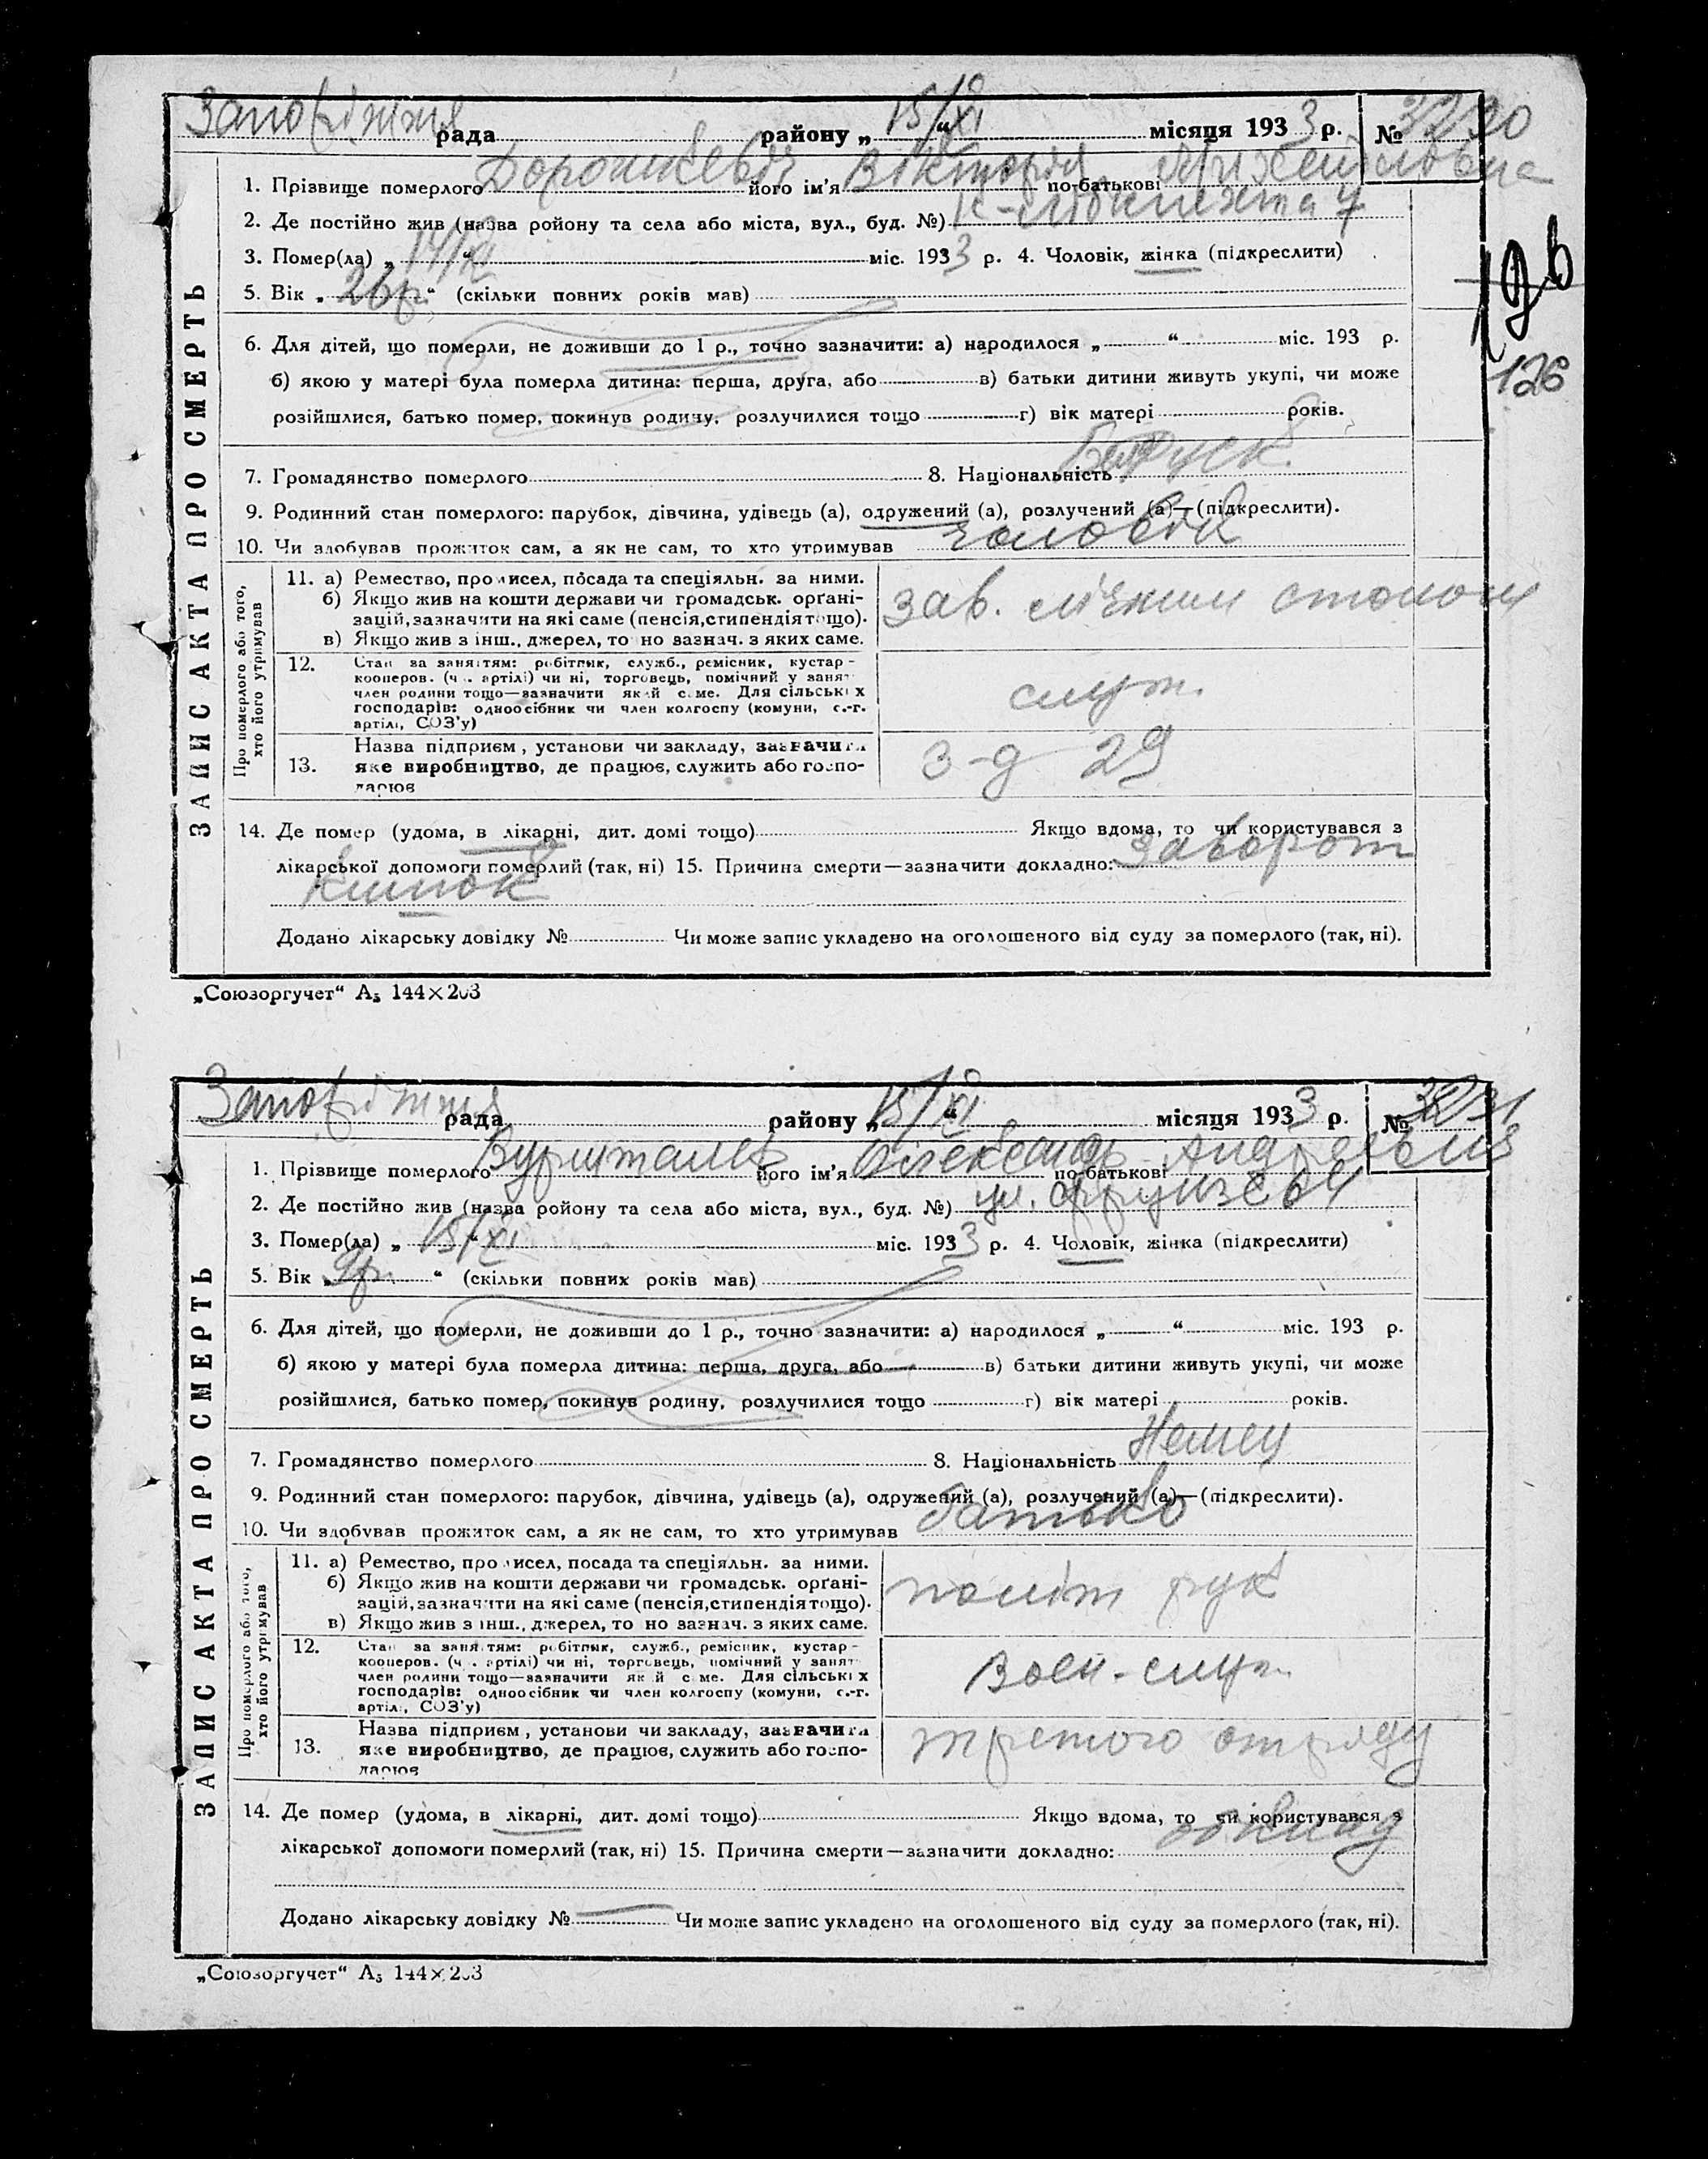 Запоріжжя рада району „ 15/XI “ місяця 1933 р. № 3230
1. Прізвище померлого Дорошкевіч його ім'я Вікторія по-батькові
2. Де постійно жив (назва ройону та села або міста, вул., буд. №) К-Лібкнехта 7
3. Помер(ла) „ 14/XI “ міс. 1933 р. 4. Чоловік, жінка (підкреслити)
196
5. Вік „ 26 р. “ (скільки повних років мав)
6. Для дітей, що померли, не доживши до 1 р., точно зазначити: а) народилося „ “ міс. 193 р.
126
б) якою у матері була померла дитина: перша, друга, або в) батьки дитини живуть укупі, чи може
розійшлися, батько помер, покинув родину, розлучилися тощо г) вік матері років.
7. Громадянство померлого 8. Національність
9. Родинний стан померлого: парубок, дівчина, удівець (а), одружений (а), розлучений (а)—(підкреслити).
10. Чи здобував прожиток сам, а як не сам, то хто утримував чоловік
ЗАПИС АКТА ПРО СМЕРТЬ
Про померлого або того, хто його утримував
11. а) Ремество, промисел, посада та спеціяльн. за ними.
б) Якщо жив на кошти держави чи громадськ. орґані-
зацій, зазначити на які саме (пенсія, стипендія тощо).
в) Якщо жив з інш., джерел, то но зазнач. з яких саме.
зав. столом
12. Стан за заняттям: робітник, служб., ремісник, кустар -
кооперов. (ч. артілі) чи ні, торговець, помічний у занят
член родини тощо—зазначити який саме. Для сільських
господарів: одноосібник чи член колгоспу (комуни, с.-г.
артілі, СОЗ'у)
служ.
13. Назва підприєм, установи чи закладу, зазначити
яке виробництво, де працює, служить або госпо-
дарює
з-д 29
14. Де помер (удома, в лікарні, дит. домі тощо) Якщо вдома, то чи користувався з
лікарської допомоги померлий (так, ні) 15. Причина смерти—зазначити докладно: Заворот
кишок
Додано лікарську довідку № Чи може запис укладено на оголошеного від суду за померлого (так, ні).
„Союзоргучет“ А5 144×203
Запоріжжя рада району „ 15/XI “ місяця 1933 р. № 3231
1. Прізвище померлого його ім'я Олександр по-батькові Андрієвич
2. Де постійно жив (назва ройону та села або міста, вул., буд. №) ул. Фрунзе 64
3. Помер(ла) „ 15/XI “ міс. 1933 р. 4. Чоловік, жінка (підкреслити)
5. Вік „ 9 р. “ (скільки повних років мав)
6. Для дітей, що померли, не доживши до 1 р., точно зазначити: а) народилося „ “ міс. 193 р.
б) якою у матері була померла дитина: перша, друга, або в) батьки дитини живуть укупі, чи може
розійшлися, батько помер, покинув родину, розлучилися тощо г) вік матері років.
7. Громадянство померлого 8. Національність Немец
9. Родинний стан померлого: парубок, дівчина, удівець (а), одружений (а), розлучений (а)—(підкреслити).
10. Чи здобував прожиток сам, а як не сам, то хто утримував батько
ЗАПИС АКТА ПРО СМЕРТЬ
Про померлого або того, хто його утримував
11. а) Ремество, промисел, посада та спеціяльн. за ними.
б) Якщо жив на кошти держави чи громадськ. орґані-
зацій, зазначити на які саме (пенсія, стипендія тощо).
в) Якщо жив з інш., джерел, то но зазнач. з яких саме.
політ рук
12. Стан за заняттям: робітник, служб., ремісник, кустар -
кооперов. (ч. артілі) чи ні, торговець, помічний у занят
член родини тощо—зазначити який саме. Для сільських
господарів: одноосібник чи член колгоспу (комуни, с.-г.
артілі, СОЗ'у)
Воен-служ.
13. Назва підприєм, установи чи закладу, зазначити
яке виробництво, де працює, служить або госпо-
дарює
третого отряду
14. Де помер (удома, в лікарні, дит. домі тощо) Якщо вдома, то чи користувався з
лікарської допомоги померлий (так, ні) 15. Причина смерти—зазначити докладно:
Додано лікарську довідку № Чи може запис укладено на оголошеного від суду за померлого (так, ні).
„Союзоргучет“ А5 144×203